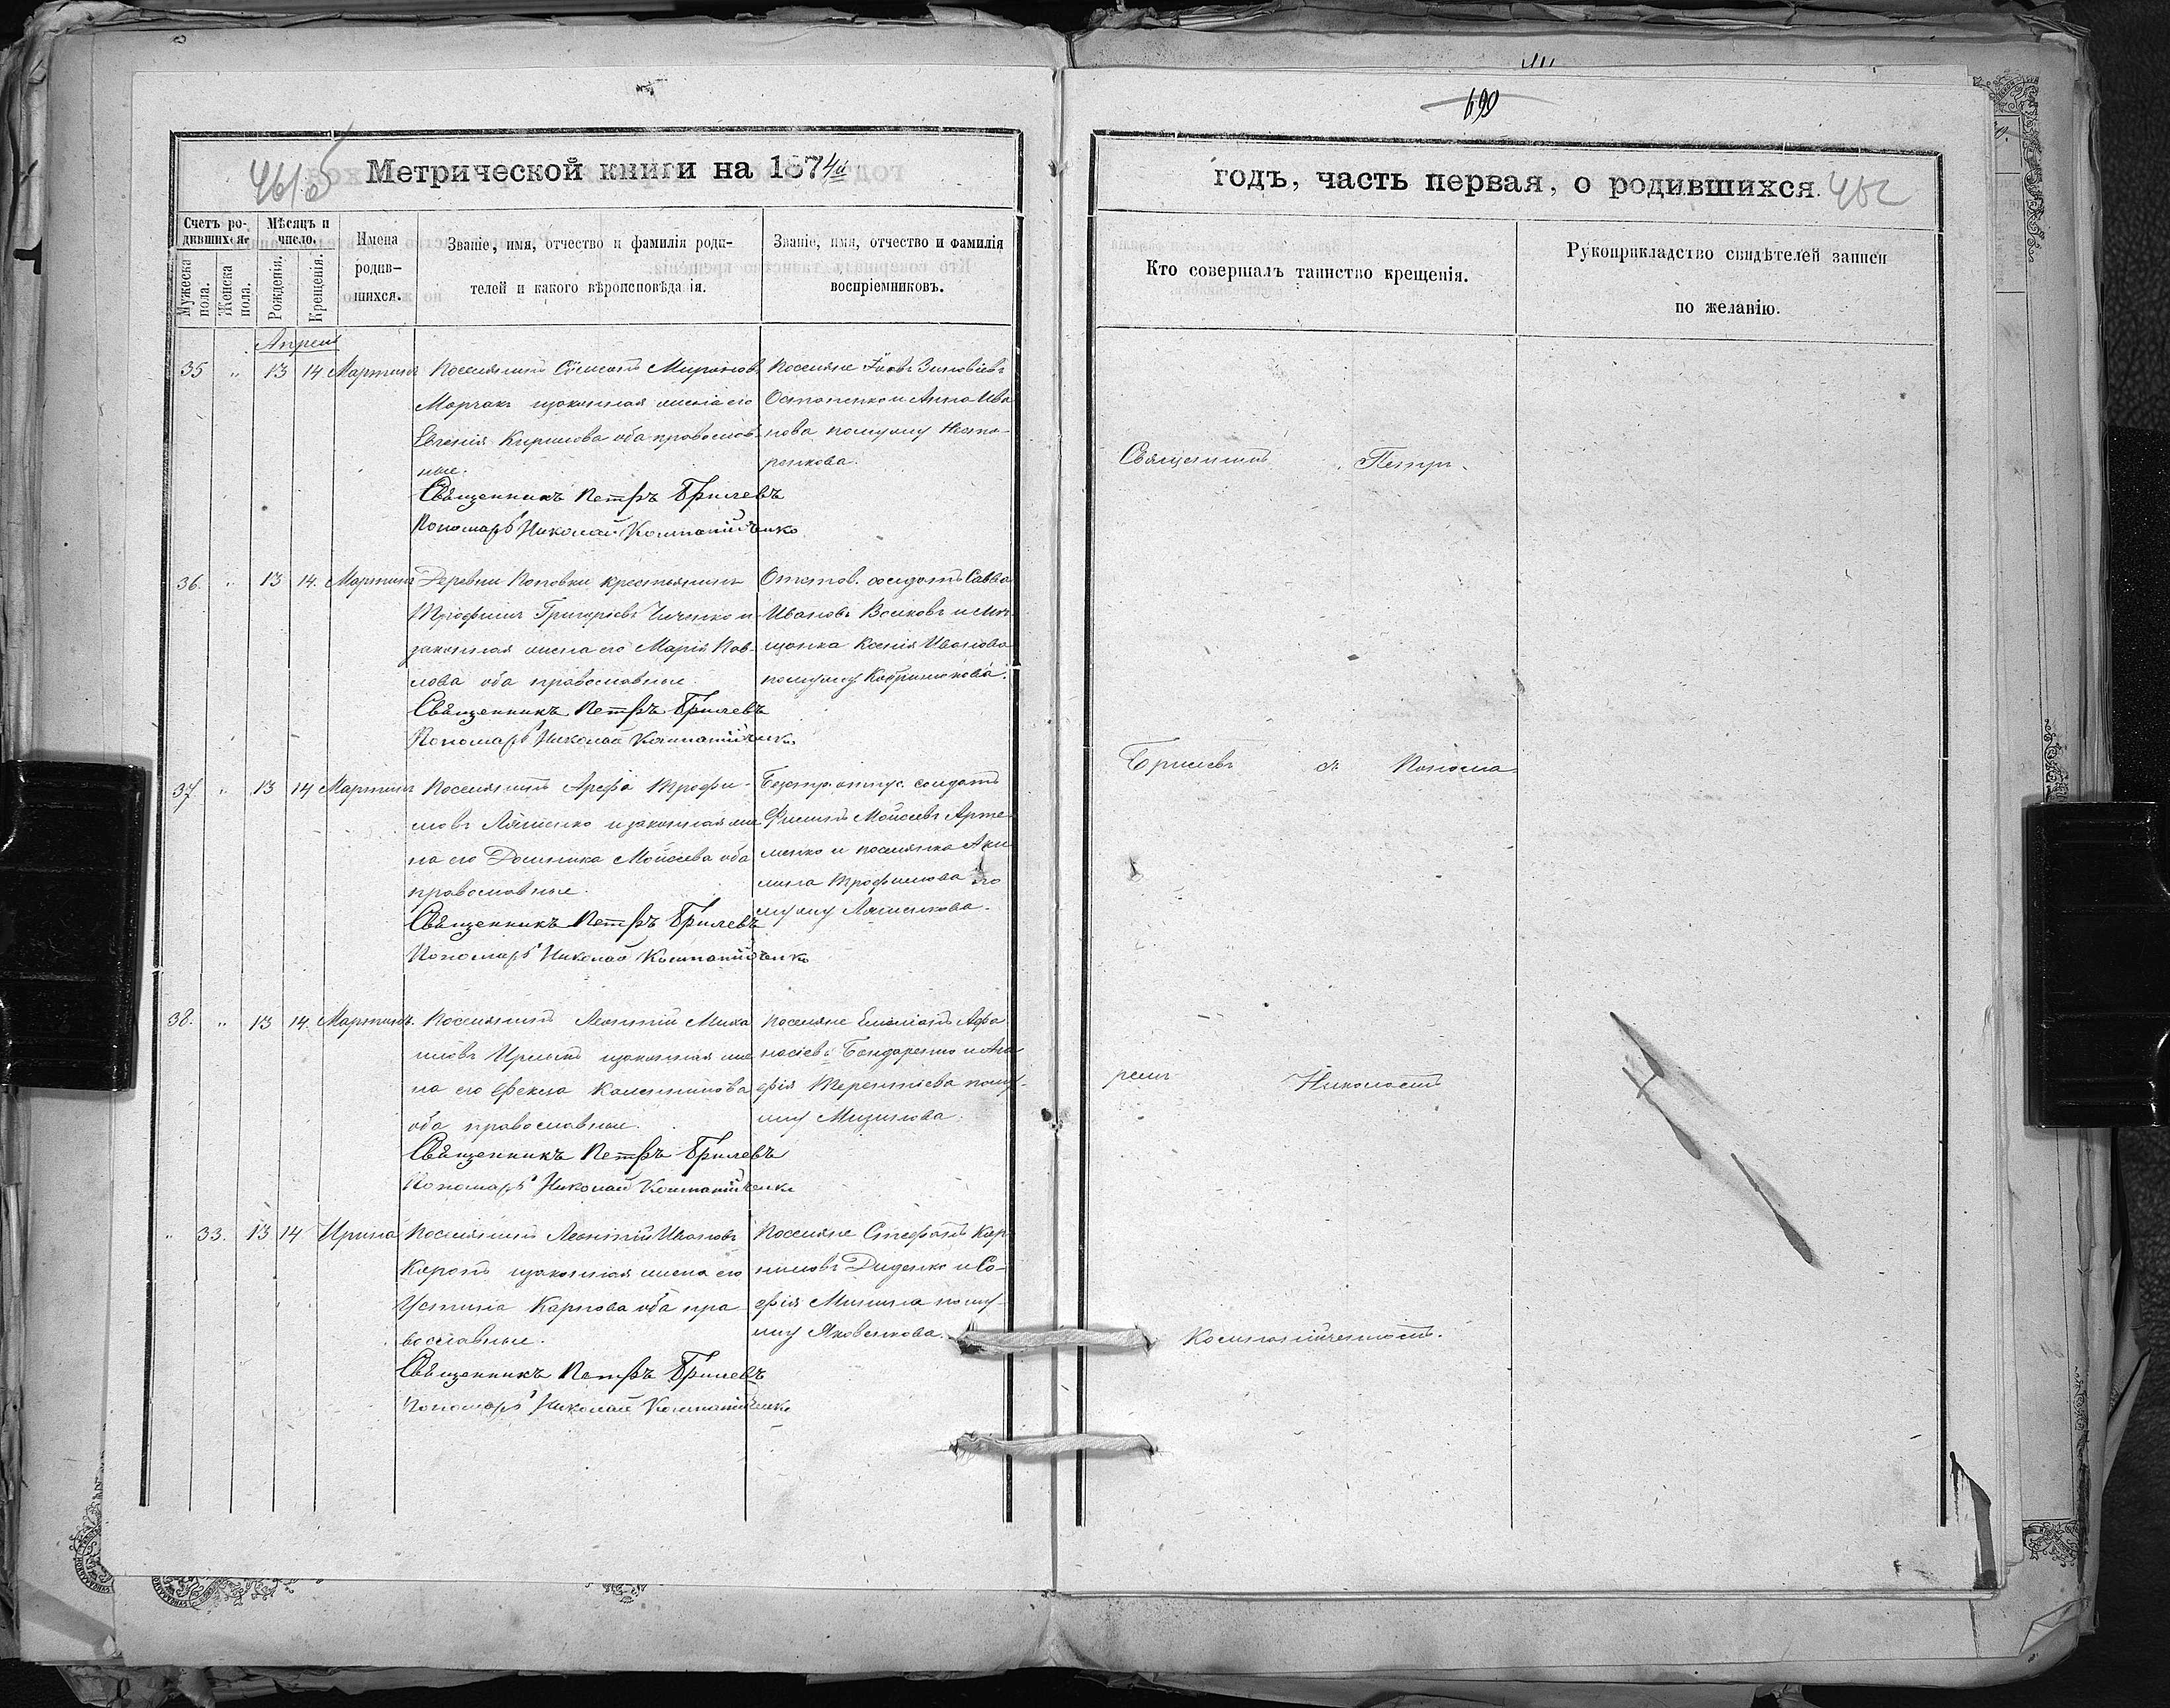 690
Метрической книги на 1874й
годъ, часть первая, о родившихся.
Счетъ родившихся.
Мужеска пола.
Женска пола.
Мѣсяцъ и число.
Рожденія.
Крещенія.
Имена родив-
шихся.
Званіе, имя, отчество и фамилія роди-
телей и какого вѣроисповѣданія.
Званіе, имя, отчество и фамилія
воспріемниковъ.
Кто совершалъ таинство крещенія.
Рукоприкладство свидѣтелей записи
по желанію.
Апрель
35 " 13 14 Мартинъ
Поселянинъ Миронов
законная жена его
Евгенія Кирилова оба православ-
ные.
Священникъ Петръ Брилевъ
Пономарь Николай Компанійченко
Поселяне Іаковъ Зиновіевъ
Остапенко и Анна Ива
нова по мужу Несто-
ренкова.
36. " 13 14. Мартинъ
Деревни Поповки крестьянинъ
Трофимъ Григоріевъ и
законная жена его Марія Пав-
лова оба православные.
Священникъ Петръ Брилевъ
Пономарь Николай Компанійченко
солдатъ Савва
Ивановъ Волковъ и мѣ
щанка Ксенія Иванова
по мужу
37. " 13 14 Мартинъ
Поселянинъ Арефа Трофи-
мовъ Ляшенко и законная же
на его Домника Мойсеева оба
православные.
Священникъ Петръ Брилевъ
Пономарь Николай Компанійченко
солдатъ
Филипъ Мойсеевъ Арте
менко и поселянка Аки
лина Трофимова по
мужу Ляшенкова.
38. " 13 14. Мартинъ.
Поселянинъ Леонтій Миха
иловъ законная же
на его Фекла
оба православные.
Священникъ Петръ Брилевъ
Пономарь Николай Компанійченко
Поселяне Емеліанъ Афа
насіевъ Бондаренко и Ага
фія Терентіева по му-
жу
" 33. 13 14 Ирина
Поселянинъ Леонтій Ивановъ
законная жена его
Устинія Карпова оба пра
вославные.
Священникъ Петръ Брилевъ
Пономарь Николай Компанійченко
Поселяне Стефанъ Кор
ниловъ Диденко и Со-
фія Минина по му-
жу Яковенкова.
Священникъ Петръ
Брилевъ съ Понома
ремъ Николаемъ
Компанійченкомъ.